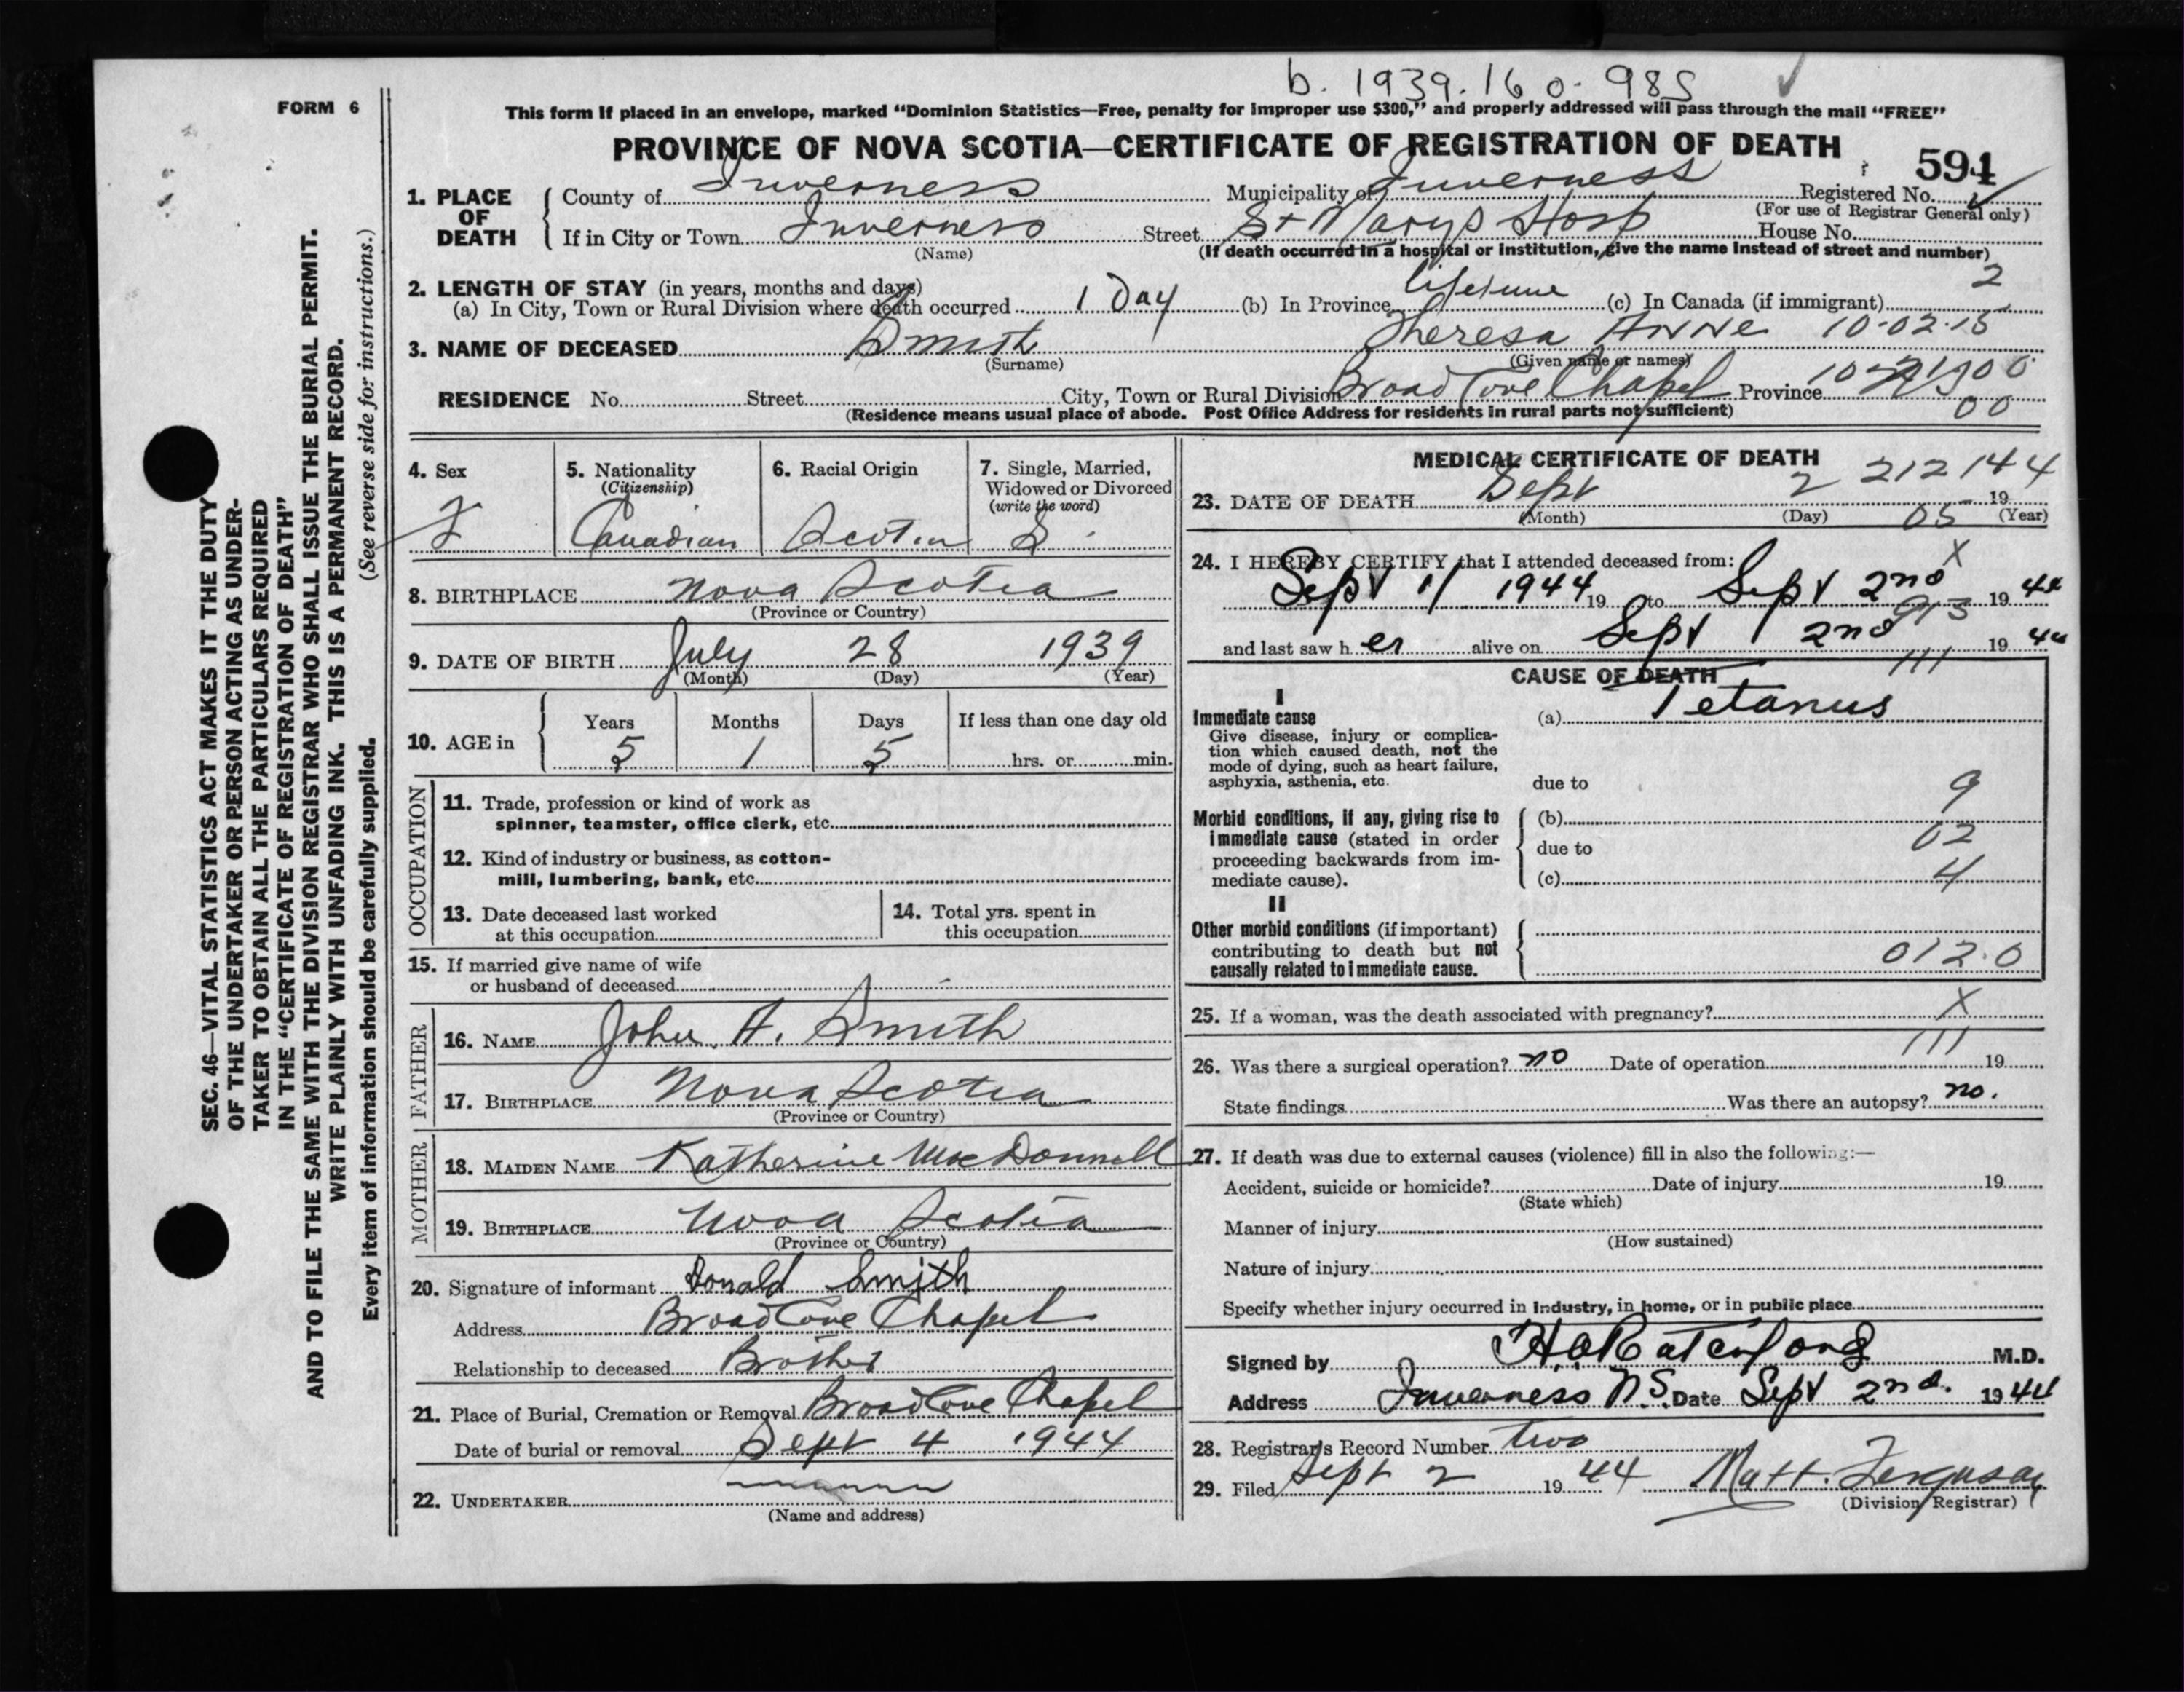 b. 1939. 16 0. 985
FORM 6
This form if placed in an envelope, marked "Dominion Statistics—Free, penalty for improper use $300," and properly addressed will pass through the mail "FREE"
PROVINCE OF NOVA SCOTIA—CERTIFICATE OF REGISTRATION OF DEATH
594
1. PLACE OF DEATH
County of Inverness Municipality of Inverness Registered No.
(For use of Registrar General only)
If in City or Town Inverness Street St Marys Hosp House No.
(Name) (If death occurred in a hospital or institution, give the name instead of street and number)
2. LENGTH OF STAY (in years, months and days) 2
(a) In City, Town or Rural Division where death occurred 1 Day (b) In Province lifetime (c) In Canada (if immigrant)
3. NAME OF DECEASED Smith Theresa Anne 10-02-15
(Surname) (Given name or names)
RESIDENCE No. Street City, Town or Rural Division Broad Cove Chapel Province
(Residence means usual place of abode. Post Office Address for residents in rural parts not sufficient) 00
4. Sex F
5. Nationality (Citizenship) Canadian
6. Racial Origin Scotia
7. Single, Married, Widowed or Divorced (write the word) S
8. BIRTHPLACE Nova Scotia
(Province or Country)
9. DATE OF BIRTH July 28 1939
(Month) (Day) (Year)
10. AGE in
Years Months Days If less than one day old
5 1 5 hrs. or min.
OCCUPATION
11. Trade, profession or kind of work as
spinner, teamster, office clerk, etc.
12. Kind of industry or business, as cotton-
mill, lumbering, bank, etc.
13. Date deceased last worked
at this occupation
14. Total yrs. spent in
this occupation
15. If married give name of wife
or husband of deceased
FATHER
16. NAME John. A. Smith
17. BIRTHPLACE Nova Scotia
(Province or Country)
MOTHER
18. MAIDEN NAME Katherine MacDonnell
19. BIRTHPLACE Nova Scotia
(Province or Country)
20. Signature of informant Donald Smith
Address Broad Cove Chapel
Relationship to deceased Brother
21. Place of Burial, Cremation or Removal Broad Cove Chapel
Date of burial or removal Sept 4 1944
22. UNDERTAKER
(Name and address)
MEDICAL CERTIFICATE OF DEATH
212144
23. DATE OF DEATH Sept 2 19
(Month) (Day) 05 (Year)
24. I HEREBY CERTIFY that I attended deceased from: X
Sept 1/ 1944 19 to Sept 2nd 19 44
913
and last saw h er alive on Sept 2nd 19 44
111
CAUSE OF DEATH
I
Immediate cause
Give disease, injury or complica-
tion which caused death, not the
mode of dying, such as heart failure,
asphyxia, asthenia, etc.
(a) Tetanus
due to
9
Morbid conditions, if any, giving rise to
immediate cause (stated in order
proceeding backwards from im-
mediate cause).
(b)
due to 02
(c) 4
II
Other morbid conditions (if important)
contributing to death but not
causally related to immediate cause.
012.0
25. If a woman, was the death associated with pregnancy? X
111
26. Was there a surgical operation? no Date of operation 19
State findings Was there an autopsy? no.
27. If death was due to external causes (violence) fill in also the following:—
Accident, suicide or homicide? Date of injury 19
(State which)
Manner of injury
(How sustained)
Nature of injury
Specify whether injury occurred in industry, in home, or in public place
Signed by M.D.
Address Inverness N.S. Date Sept 2nd. 1944
28. Registrar's Record Number two
29. Filed Sept 2 19 44 Matt. Ferguson
(Division Registrar)
SEC. 46—VITAL STATISTICS ACT MAKES IT THE DUTY
OF THE UNDERTAKER OR PERSON ACTING AS UNDER-
TAKER TO OBTAIN ALL THE PARTICULARS REQUIRED
IN THE "CERTIFICATE OF REGISTRATION OF DEATH"
AND TO FILE THE SAME WITH THE DIVISION REGISTRAR WHO SHALL ISSUE THE BURIAL PERMIT.
WRITE PLAINLY WITH UNFADING INK. THIS IS A PERMANENT RECORD.
Every item of information should be carefully supplied. (See reverse side for instructions.)